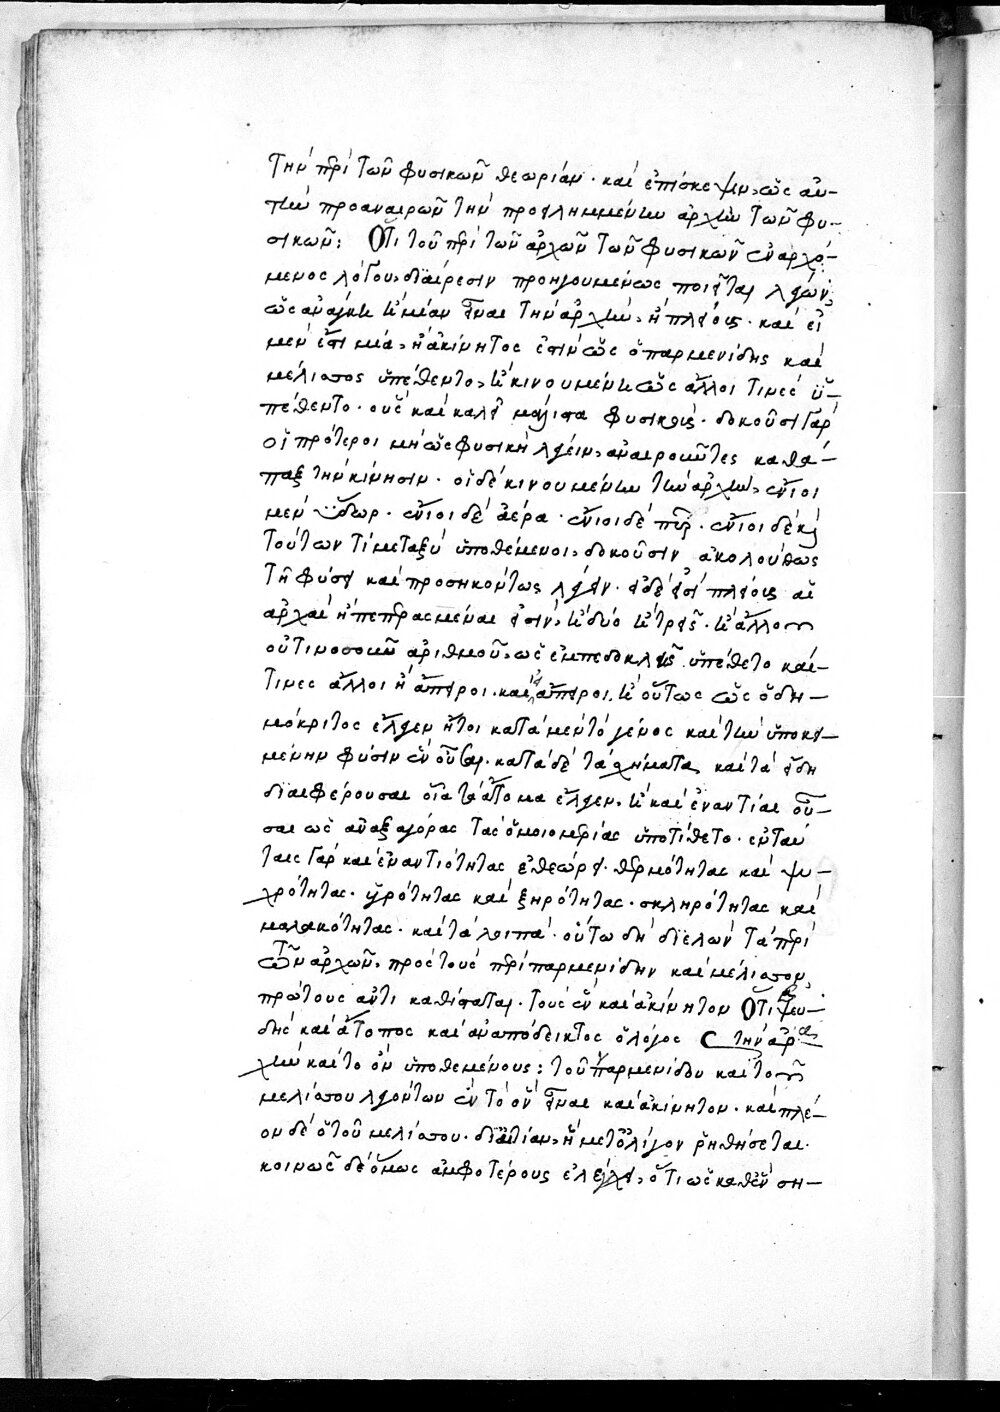 τὴν περὶ τῶν φυσικῶν θεωρίαν. καὶ ἐπίσκεψιν, ὡς αὐ-
τὴν προαναιρῶν τὴν προσλημμένην ἀρχὴν τῶν φυ-
σικῶν: Ὅτι τοῦ περὶ τῶν ἀρχῶν τῶν φυσικῶν ἐναρχό-
μενος λόγου, διαίρεσιν προηγουμένως ποιεῖται λέγων,
ὡς ἀνάγκη ἢ μίαν εἶναι τὴν ἀρχὴν, ἢ πλείους. καὶ εἰ
μὲν ἔστι μία, ἢ ἀκίνητος ἐστὶν ὡς ὁ παρμενίδης καὶ
μέλισσος ὑπέθεντο, ἢ κινουμένη ὡς ἄλλοι τινὲς ὑ-
πέθεντο. οὓς καὶ καλεῖ μάλιστα φυσικούς. δοκοῦσι γὰρ
οἱ πρότεροι μὴ ὡς φυσικοὶ λέγειν, ἀναιροῦντες καθά-
παξ τὴν κίνησιν. οἱ δὲ κινουμένην τὴν ἀρχὴν, ἔνιοι
μὲν ὕδωρ. ἔνιοι δὲ ἀέρα. ἔνιοι δὲ πῦρ. ἔνιοι δὲ καὶ
τούτων τί μεταξὺ ὑποθέμενοι, δοκοῦσιν ἀκολούθως
τῇ φύσει καὶ προσηκόντως λέγειν. εἰ δὲ εἰσὶ πλείους αἱ
ἀρχαὶ ἢ πεπερασμέναι εἰσὶν, ἢ δύο ἢ τρεῖς. ἢ ἄλλου
οὑτινοσοῦν ἀριθμοῦ, ὡς ἐμπεδοκλῆς ὑπέθετο καὶ
τινες ἄλλοι ἢ ἄπειροι. καὶ εἰ ἄπειροι, ἢ οὕτως ὡς ὁ δη-
μόκριτος ἔλεγεν ἤτοι κατὰ μὲν τὸ γένος καὶ τὴν ὑποκει-
μένην φύσιν ἓν οὖσαι. κατὰ δὲ τὰ σχήματα καὶ τὰ εἴδη
διαφέρουσαι οἷα τὰ ἄτομα ἔλεγεν, ἢ καὶ ἐναντίαι οὖ-
σαι ὡς ἀναξαγόρας τὰς ὁμοιομερείας ὑποτίθετο. ἐν ταύ
ταις γὰρ καὶ ἐναντιότητας ἐθεώρει. θερμότητας καὶ ψυ-
χρότητας. ὑγρότητας καὶ ξηρότητας. σκληρότητας καὶ
μαλακότητας. καὶ τὰ λοιπά. οὕτω δὴ διελὼν τὰ περὶ
τῶν ἀρχῶν, πρὸς τοὺς περὶ παρμενίδην καὶ μέλισσον,
πρώτους ἀντικαθίσταται. τοὺς ἓν καὶ ἀκίνητον Ὅτι ψευ-
δὴς καὶ ἄτοπος καὶ ἀναπόδεικτος ὁ λόγος τὴν ἀρ
χὴν καὶ τὸ ὂν ὑποθεμένους: τοῦ παρμενίδου καὶ τοῦ
μελίσσου λεγόντων ἓν τὸ ὂν εἶναι καὶ ἀκίνητον. καὶ πλέ-
ον δὲ ὁ τοῦ μελίσσου. δι' αἰτίαν, ἣ μετ' ὀλίγον ῥηθήσεται.
κοινῶς δὲ ὅμως ἀμφοτέρους ἐλέγχει, ὅτι ὡς καθ' ἓν ση-